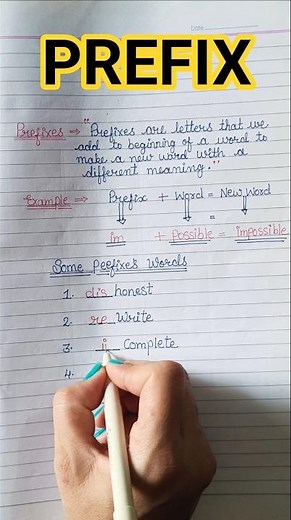 PREFIX
Date
Prefixes ⇒ "Prefixes are letters that we
add to beginning of a word to
make a new word with a
different meaning."
Example ⇒ Prefix + Word = New Word
=
im + possible = impossible
Some Peefixe's Words
1. dis honest
2. re Write
3. i Complete
4.